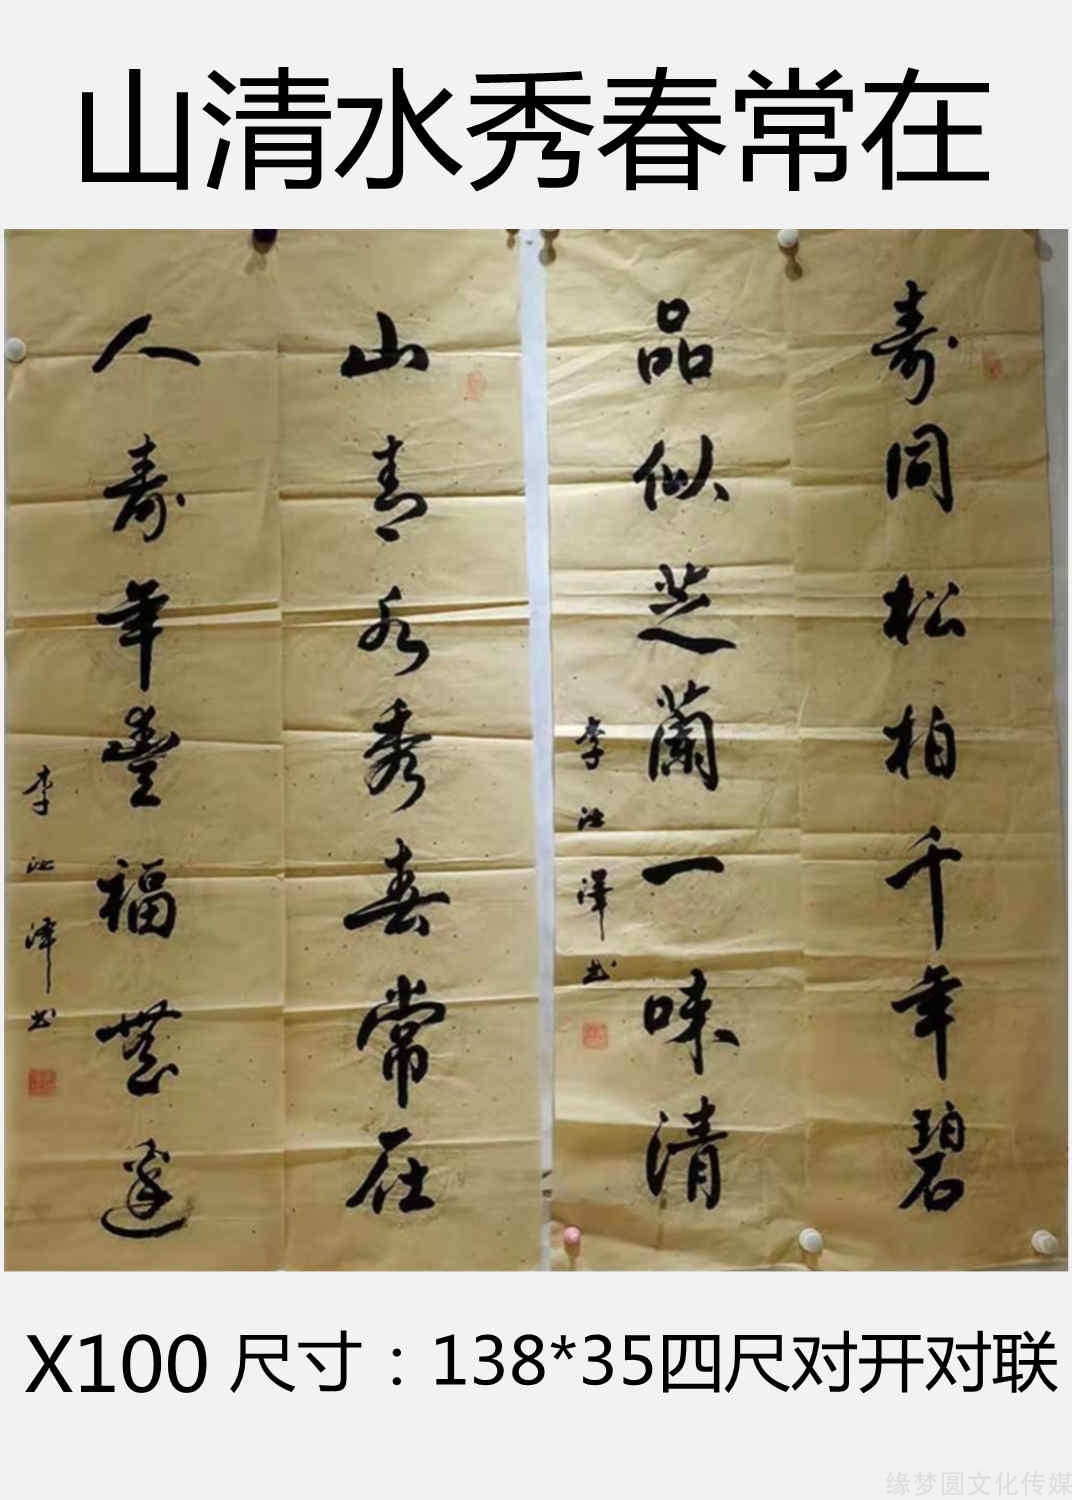 山清水秀春常在
寿同松柏千年碧
品似芝蘭一味清
李江澤书
山青水秀春常在
人寿年豐福
李江澤书
X100 尺寸：138*35四尺对开对联
缘梦圆文化传媒